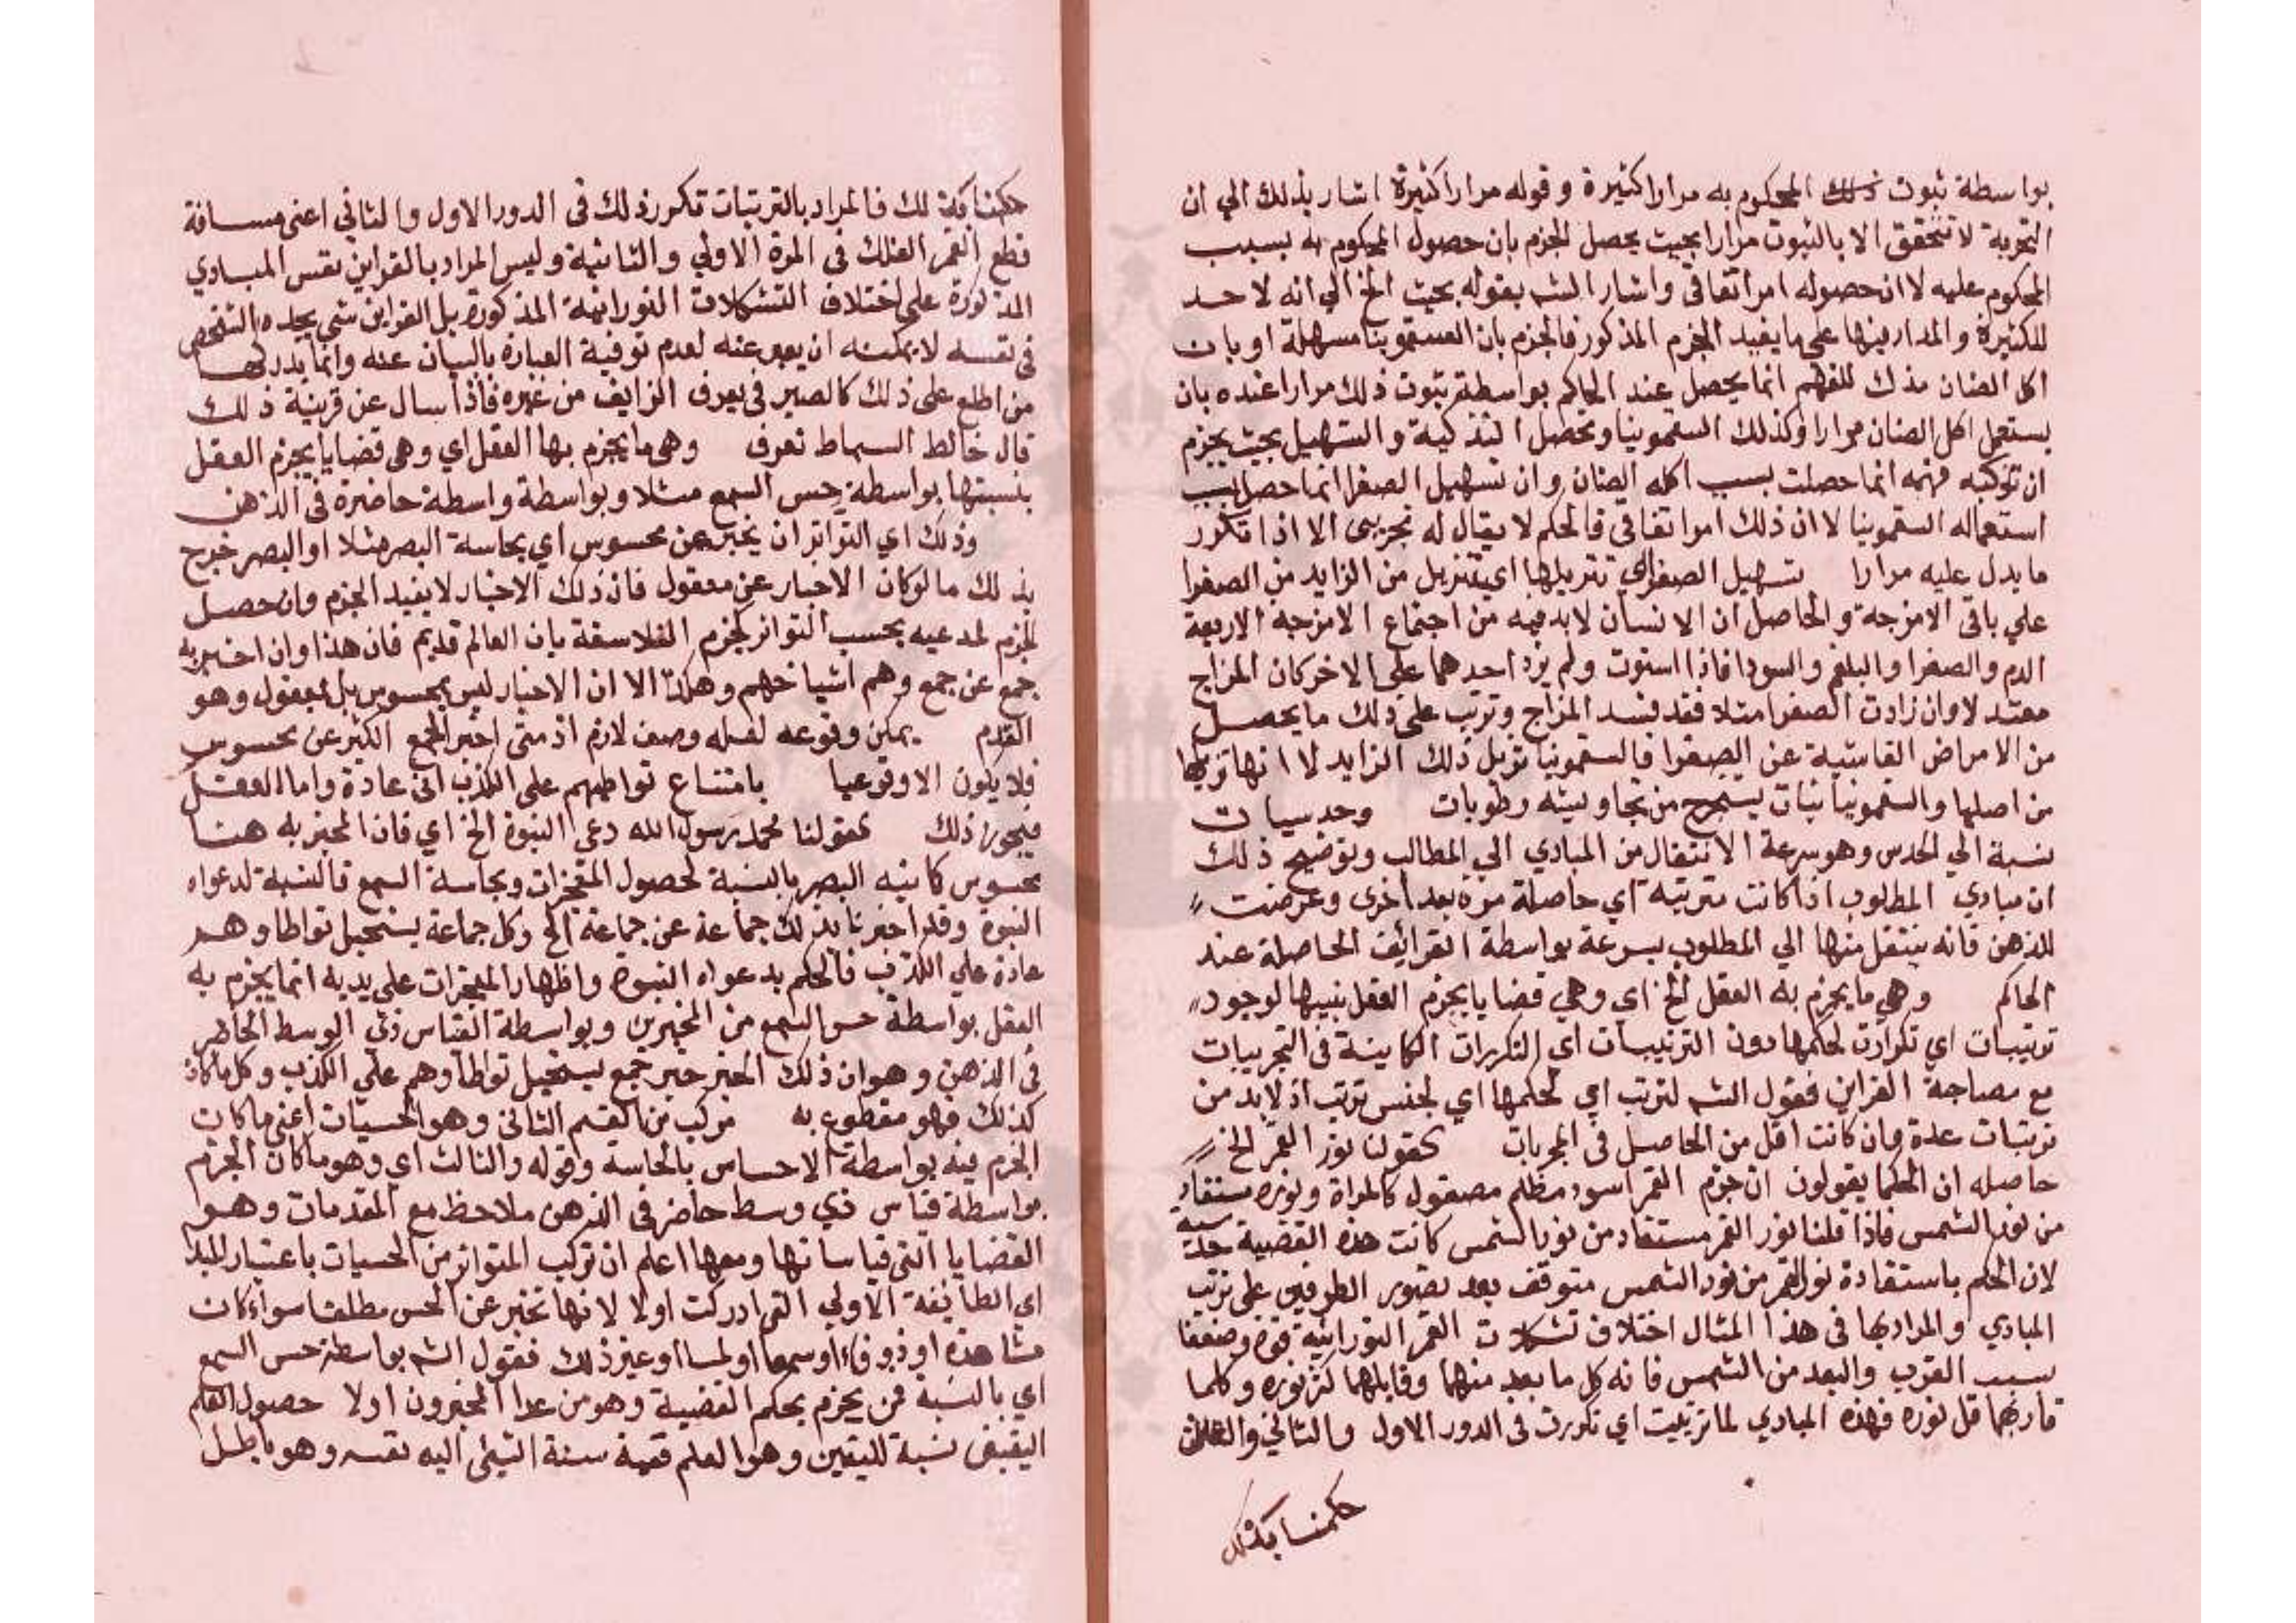 بواسطة ثبوت ذلك المحكوم به مرارا كثيرة وقوله مرارا كثيرة اشار بذلك الي ان
التجربة لا تتحقق الا بالثبوت مرارا بحيث يحصل الجزم بان حصول المحكوم به بسبب
المحكوم عليه لا ان حصوله امر اتفاقي واشار الشہ بقوله بحيث الخ الي انه لا حد
للكثيرة والمدار فيها علي ما يفيد الجزم المذكور فالجزم بان السقمونيا مسهلة او بان
اكل الصنان مذك للفهم انما يحصل عند الحاكم بواسطة ثبوت ذلك مرارا عنده بان
يستعمل اكل الصنان مرارا وكذلك السقمونيا وتحصل التذكية والتسهيل بحيث يجزم
ان توكيه فهمه انما حصلت بسبب اكله الصنان وان تسهيل الصفرا انما حصل بسبب
استعماله السقمونيا لا ان ذلك امر اتفاقي فالحكم لا يقال له تجريبي الا اذا تكرر
ما يدل عليه مرارا تسهيل الصفرا اي تنزيلها اي تنزيل من الزايد من الصفرا
علي باقي الامزجة والحاصل ان الانسان لا بد فيه من اجتماع الامزجة الاربعة
الدم والصفرا والبلغم والسودا فاذا استوت ولم يزد احدهما علي الاخر كان المزاج
معتدلا وان زادت الصفرا مثلا فقد فسد المزاج وترتب علي ذلك ما يحصل
من الامراض الناشية عن الصفرا فالسقمونيا تزيل ذلك الزايد لا انها تزيلها
من اصلها والسقمونيا نبات يستخرج من تجاويفه رطوبات وحدسيات
نسبة الي الحدس وهو سرعة الانتقال من المبادي الي المطالب وتوضيح ذلك
ان مبادي المطلوب اذا كانت مترتبة اي حاصلة مرة بعد اخرى وعرضت
للذهن فانه ينتقل منها الي المطلوب بسرعة بواسطة القرائن الحاصلة عند
الحاكم وهي ما يجزم به العقل الخ اي وهي قضايا يجزم العقل بنسبها لوجود
ترتيبات اي تكرارت لحكمها دون الترتيبات اي التكررات الكاينة في التجربيات
مع مصاحبة القراين فقول الشہ لترتب اي لحكمها اي لجنس ترتب اذ لا بد من
ترتبات عدة وان كانت اقل من الحاصل في المجربات كقولنا نور القمر الخ
حاصله ان الحكما يقولون ان جرم القمر اسود مظلم مصقول كالمراة ونوره مستفاد
من نور الشمس فاذا قلنا نور القمر مستفاد من نور الشمس كانت هذه القضية حدسية
لان الحكم باستفادة نور القمر من نور الشمس متوقف بعد تصور الطرفين علي ترتب
المبادي والمراد بها في هذا المثال اختلاف تشكلات القمر النورانية قوة وضعفا
بسبب القرب والبعد من الشمس فانه كل ما بعد منهما وقابلهما كثر نوره وكلما
قاربهما قل نوره فهذه المبادي لما ترتبت اي تكررت في الدور الاول والثاني والثالث
حكمنا بذلك
حكمنا بذلك فالمراد بالترتبات تكرر ذلك في الدور الاول والثاني اعني مسافة
قطع القمر الفلك في المرة الاولي والثانية وليس المراد بالقراين نفس المبادي
المذكورة علي اختلاف التشكلات النورانية المذكورة بل القراين شي يجده الشخص
في نفسه لا يمكنه ان يعبر عنه لعدم توفية العبارة بالبيان عنه وانما يدركها
من اطلع علي ذلك كالصير في يعرف الزايف من غيره فاذا سال عن قرينة ذلك
قال خالط السماط تعرف وهي ما يجزم بها العقل اي وهي قضايا يجزم العقل
بنسبتها بواسطة حس السمع مثلا وبواسطة واسطة حاضرة في الذهن
وذلك اي التواتر ان يخبر عن محسوس اي بحاسة البصر مثلا او البصر خرج
بذلك ما لو كان الاخبار عن معقول فان ذلك الاخبار لا يفيد الجزم وان حصل
الجزم لمدعيه بحسب التواتر كجزم الفلاسفة بان العالم قديم فان هذا وان اخبر به
جمع عن جمع وهم اشياخهم وهكذا الا ان الاخبار ليس بمحسوس بل بمعقول وهو
القدم يمكن وقوعه لعله وصف لازم اذ متى اخبر الجمع الكثير عن محسوس
فلا يكون الا وقوعيا بامتناع تواطيهم علي الكذب اي عادة واما العقل
فيجوز ذلك كقولنا محمد رسول الله دعي النبوة الخ اي فان المخبر به هنا
محسوس كاينه البصر بالنسبة لحصول المعجزات وبحاسة السمع فالنسبة لدعواه
النبوة وقد اخبرنا بذلك جماعة عن جماعة الخ وكل جماعة يستحيل تواطاوهم
عادة علي الكذب فالحكم بدعواه النبوة واظهار المعجزات علي يديه انما يجزم به
العقل بواسطة حس السمع من المخبرين وبواسطة القياس ذي الوسط الحاضر
في الذهن وهو ان ذلك الخبر خبر جمع يستحيل تواطاوهم علي الكذب وكل ما كان
كذلك فهو مقطوع به مركب من القسم الثاني وهو الحسيات اعني ما كان
الجزم فيه بواسطة الاحساس بالحاسة وقوله والثالث اي وهو ما كان الجزم
بواسطة قياس ذي وسط حاضر في الذهن ملاحظ مع المقدمات وهو
القضايا التي قياساتها ومعها اعلم ان تركب المتواتر من الحسيات باعتبار المبدا
اي الطايفة الاولي التي ادركت اولا لانها تخبر عن الحس مطلقا سواء كان
مشاهدة او ذوقا او سمعا او لمسا او غير ذلك فقول الشہ بواسطة حس السمع
اي بالنسبة لمن يجزم بحكم القضية وهو من عدا المخبرون اولا حصول العلم
اليقيني نسبة لليقين وهو العلم ففيه نسبة الشيئ اليه نفسه وهو باطل